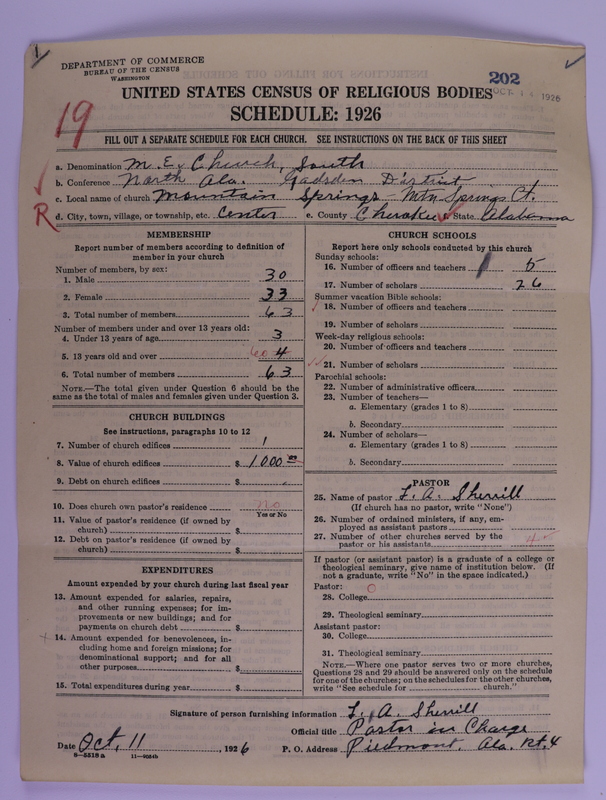 1
DEPARTMENT OF COMMERCE
BUREAU OF THE CENSUS
WASHINGTON
202
OCT 1 1926
UNITED STATES CENSUS OF RELIGIOUS BODIES
SCHEDULE: 1926
19
FILL OUT A SEPARATE SCHEDULE FOR EACH CHURCH. SEE INSTRUCTIONS ON THE BACK OF THIS SHEET
a. Denomination M. E. Church, South
b. Conference North Ala. Gadsden District
c. Local name of church Mountain Springs Mtn Springs Ct.
R
d. City, town, village, or township, etc. Center e. County Cherokee f. State Alabama
MEMBERSHIP
Report number of members according to definition of
member in your church
Number of members, by sex:
1. Male 30
2. Female 33
3. Total number of members 63
Number of members under and over 13 years old:
4. Under 13 years of age 3
5. 13 years old and over 60 4
6. Total number of members 63
NOTE.—The total given under Question 6 should be the
same as the total of males and females given under Question 3.
CHURCH BUILDINGS
See instructions, paragraphs 10 to 12
7. Number of church edifices 1
8. Value of church edifices $ 1000 00
9. Debt on church edifices $
10. Does church own pastor's residence No
Yes or No
11. Value of pastor's residence (if owned by
church) $
12. Debt on pastor's residence (if owned by
church) $
EXPENDITURES
Amount expended by your church during last fiscal year
13. Amount expended for salaries, repairs,
and other running expenses; for im-
provements or new buildings; and for
payments on church debt $
14. Amount expended for benevolences, in-
cluding home and foreign missions; for
denominational support; and for all
other purposes $
15. Total expenditures during year $
CHURCH SCHOOLS
Report here only schools conducted by this church
Sunday schools:
16. Number of officers and teachers 5
17. Number of scholars 26
Summer vacation Bible schools:
18. Number of officers and teachers
19. Number of scholars
Week-day religious schools:
20. Number of officers and teachers
21. Number of scholars
Parochial schools:
22. Number of administrative officers
23. Number of teachers—
a. Elementary (grades 1 to 8)
b. Secondary
24. Number of scholars—
a. Elementary (grades 1 to 8)
b. Secondary
PASTOR
25. Name of pastor L. A. Sherrill
(If church has no pastor, write "None")
26. Number of ordained ministers, if any, em-
ployed as assistant pastors
27. Number of other churches served by the
pastor or his assistants 4
If pastor (or assistant pastor) is a graduate of a college or
theological seminary, give name of institution below. (If
not a graduate, write "No" in the space indicated.)
Pastor:
28. College
29. Theological seminary
Assistant pastor:
30. College
31. Theological seminary
NOTE.—Where one pastor serves two or more churches,
Questions 28 and 29 should be answered only on the schedule
for one of the churches; on the schedules for the other churches,
write "See schedule for church."
Signature of person furnishing information L. A. Sherrill
Official title Pastor in Charge
Date Oct, 11, 1926 P. O. Address Piedmont, Ala. Rt. 4
8—5518 a